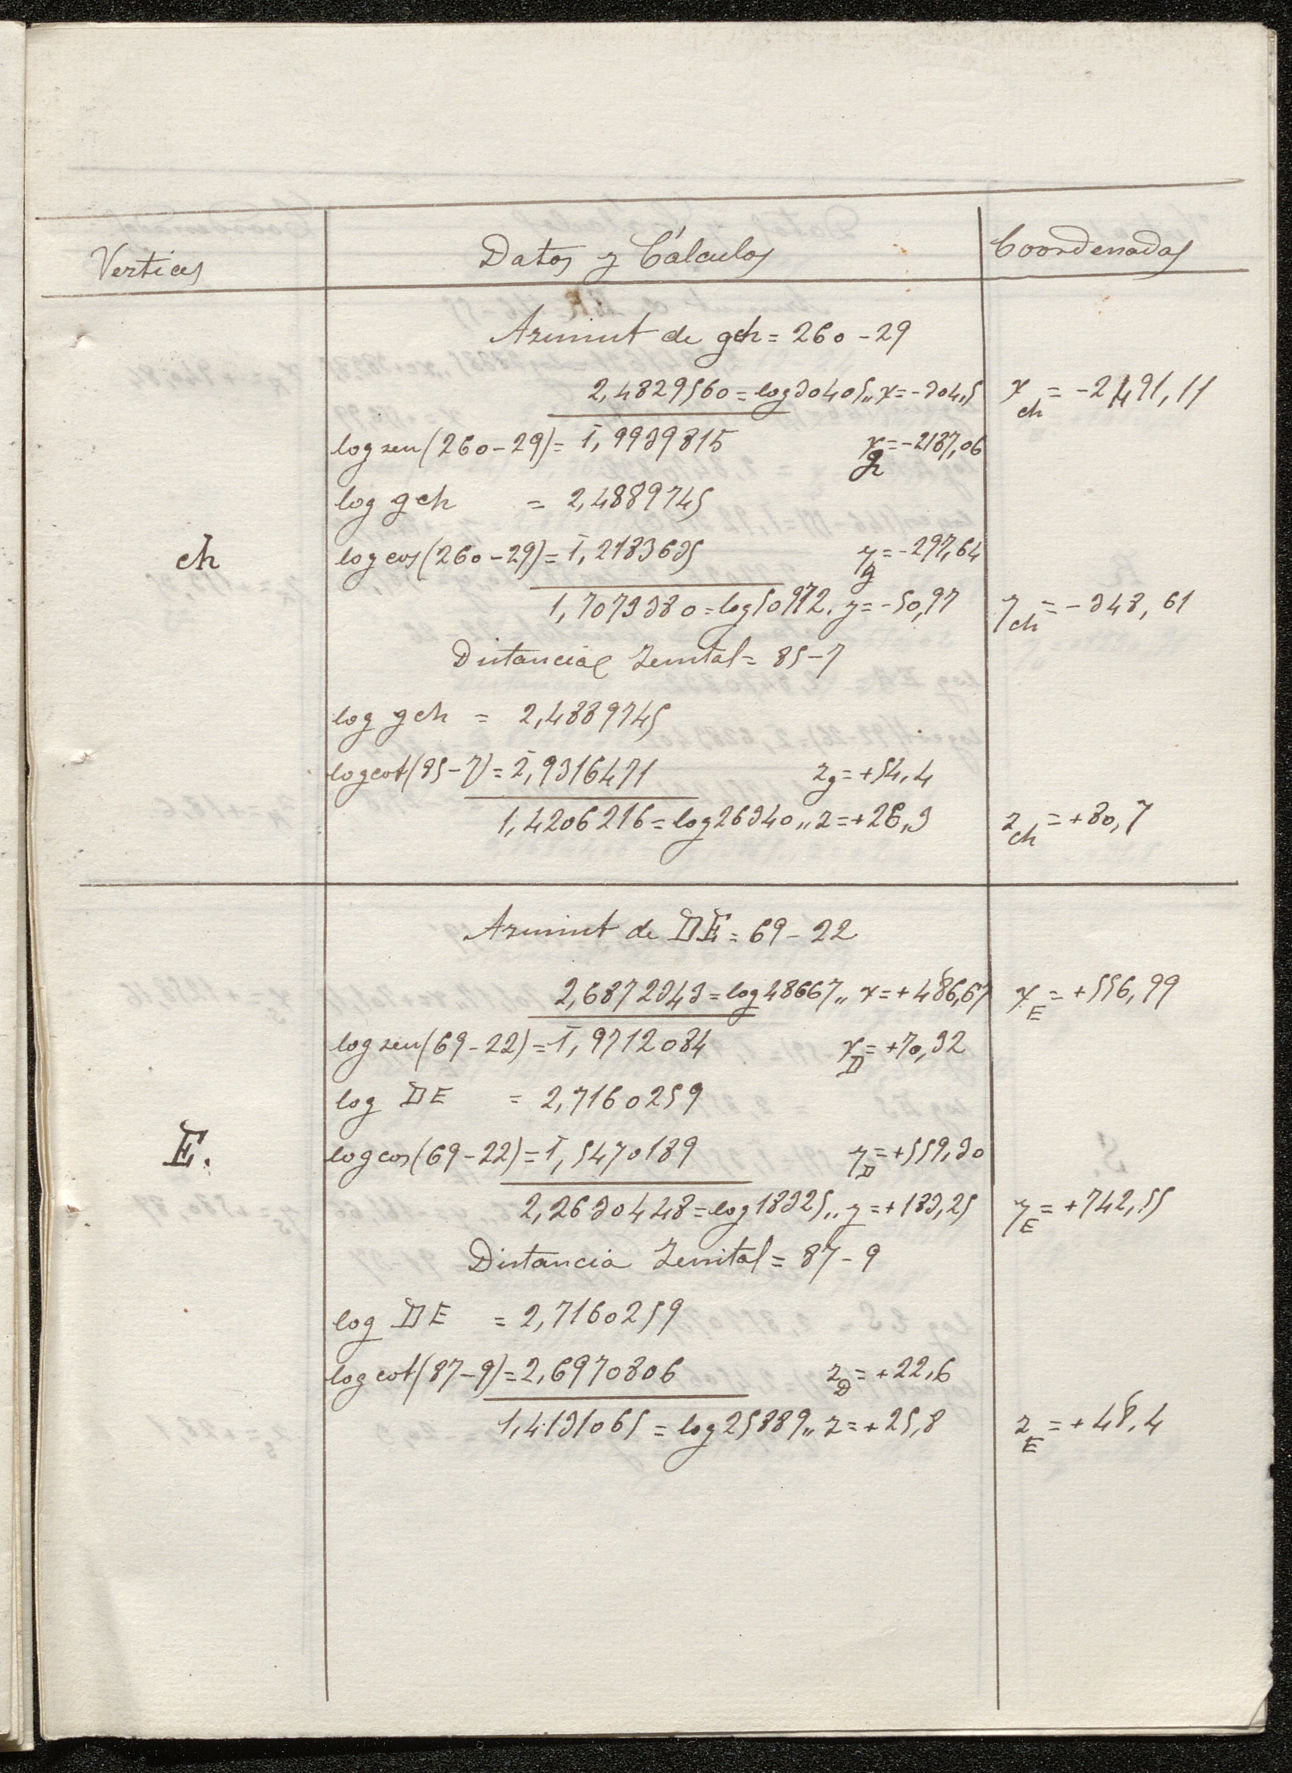 Vertices Datos y Cálculos Coordenadas
Azimut de gch = 260-29
2,4829560 = log 30405,, x = -304,5 x ch = -2491,11
log sen (260-29) = 1̅,9939815 x g = -2187,06
log gch = 2,4889745
ch log cos (260-29) = 1̅,2183635 y g = -297,64
1,7073380 = log 50972. y = -50,97 y ch = -348,61
Distancia Zenital = 85-7
log gch = 2,4889745
log cot (85-7) = 2̅,9316471 z g = +54,4
1,4206216 = log 26340,, z = +26,3 z ch = +80,7
Azimut de DE = 69-22
2,6872343 = log 48667,, x = +486,67 x E = +556,99
log sen (69-22) = 1̅,9712084 x D = +70,32
log DE = 2,7160259
E. log cos (69-22) = 1̅,5470189 y D = +559,30
2,2630448 = log 18325,, y = +183,25 y E = +742,55
Distancia Zenital = 87-9
log DE = 2,7160259
log cot (87-9) = 2,6970806 z D = +22,6
1,4131065 = log 25889,, z = +25,8 z E = +48,4